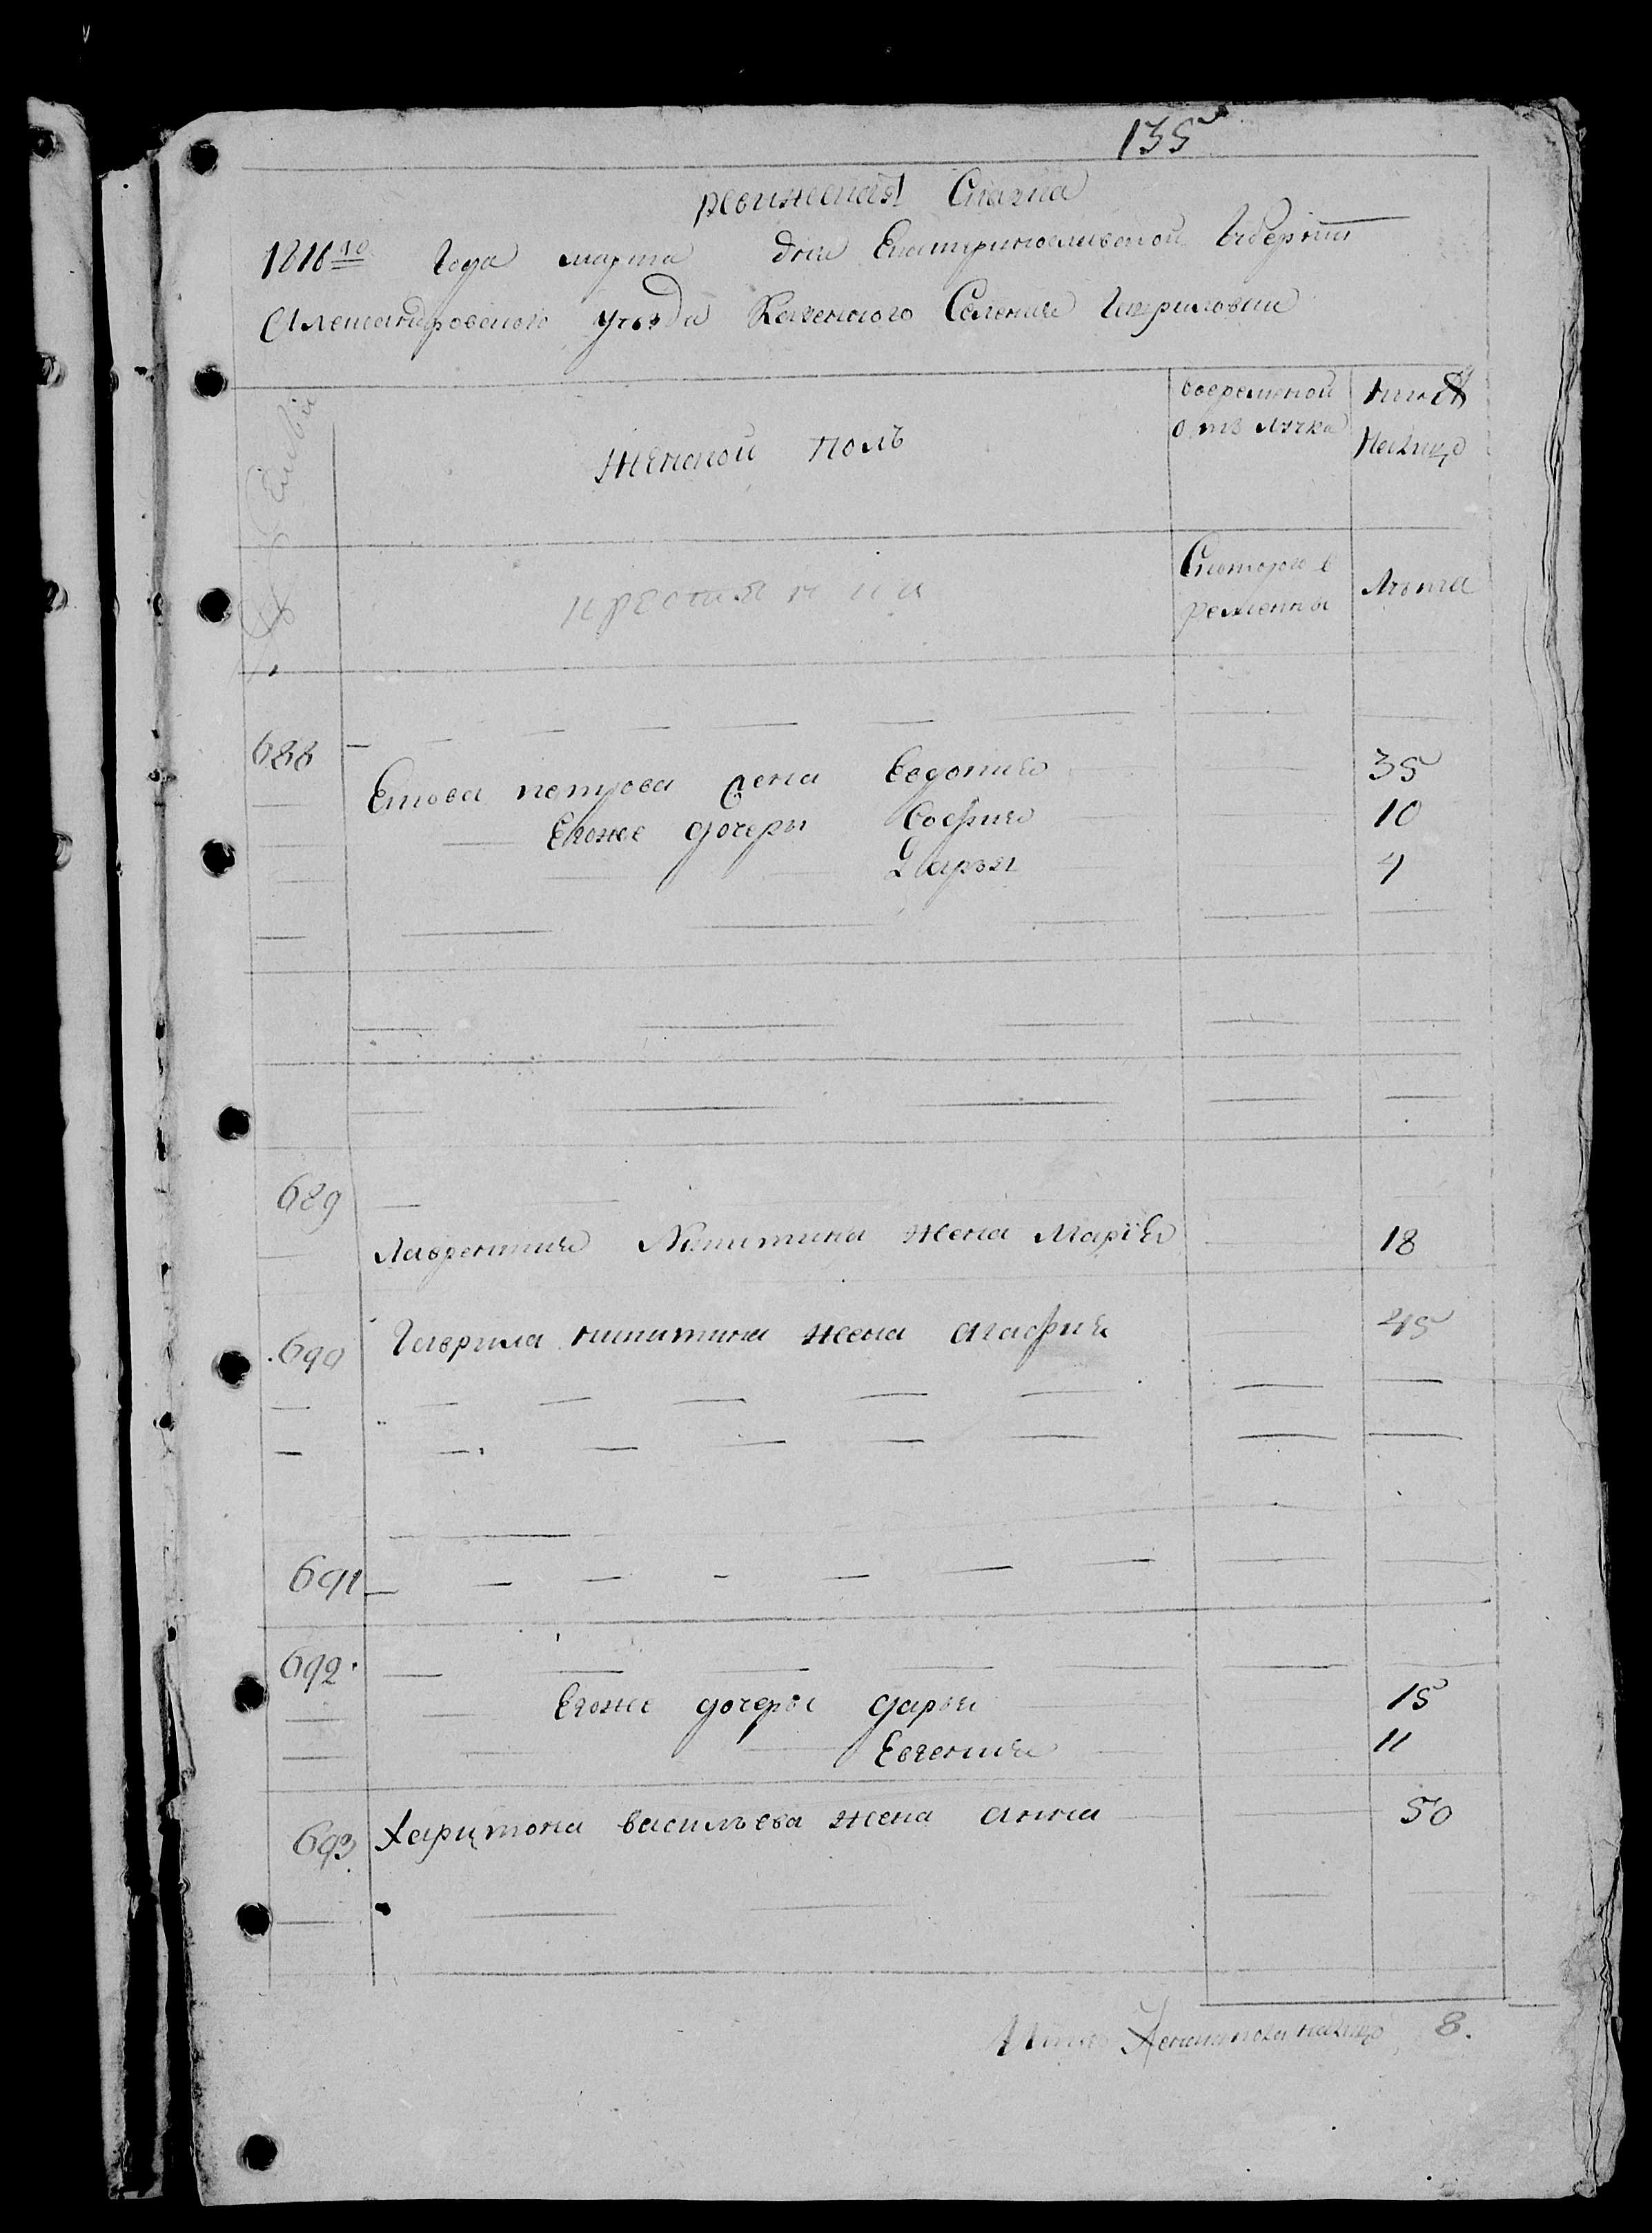 135
ревижская Сказка
1816го Года марта дня Екатеринославской Губернии
Александровского уезда Казенного Селения Гавриловки
Семьи
женской полъ
вовременной отълучке
ныне налицо
крестьянии
Скоторого времены
Лета
688
Евдокия 35
Егоже дочеры София 10
Дарья 4
689
Лаврентия Никитина жена Марія 18
690 Гаврила никитина жена агафия 45
691
692
Егоже дочеры дарья 15
Евгения 11
693 Харитона васильева жена анна 50
Итого Женска пола налицо 8.